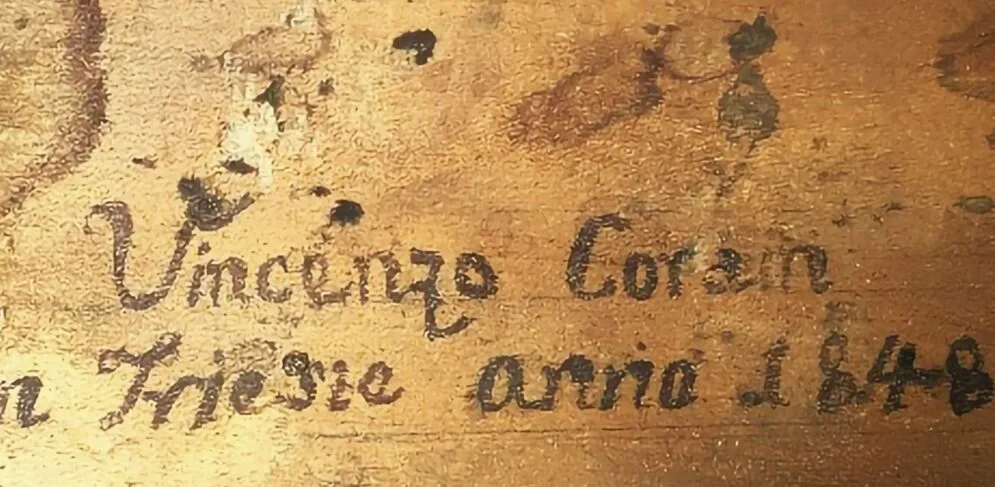 Vincenzo Coram
n Trieste anno 1848